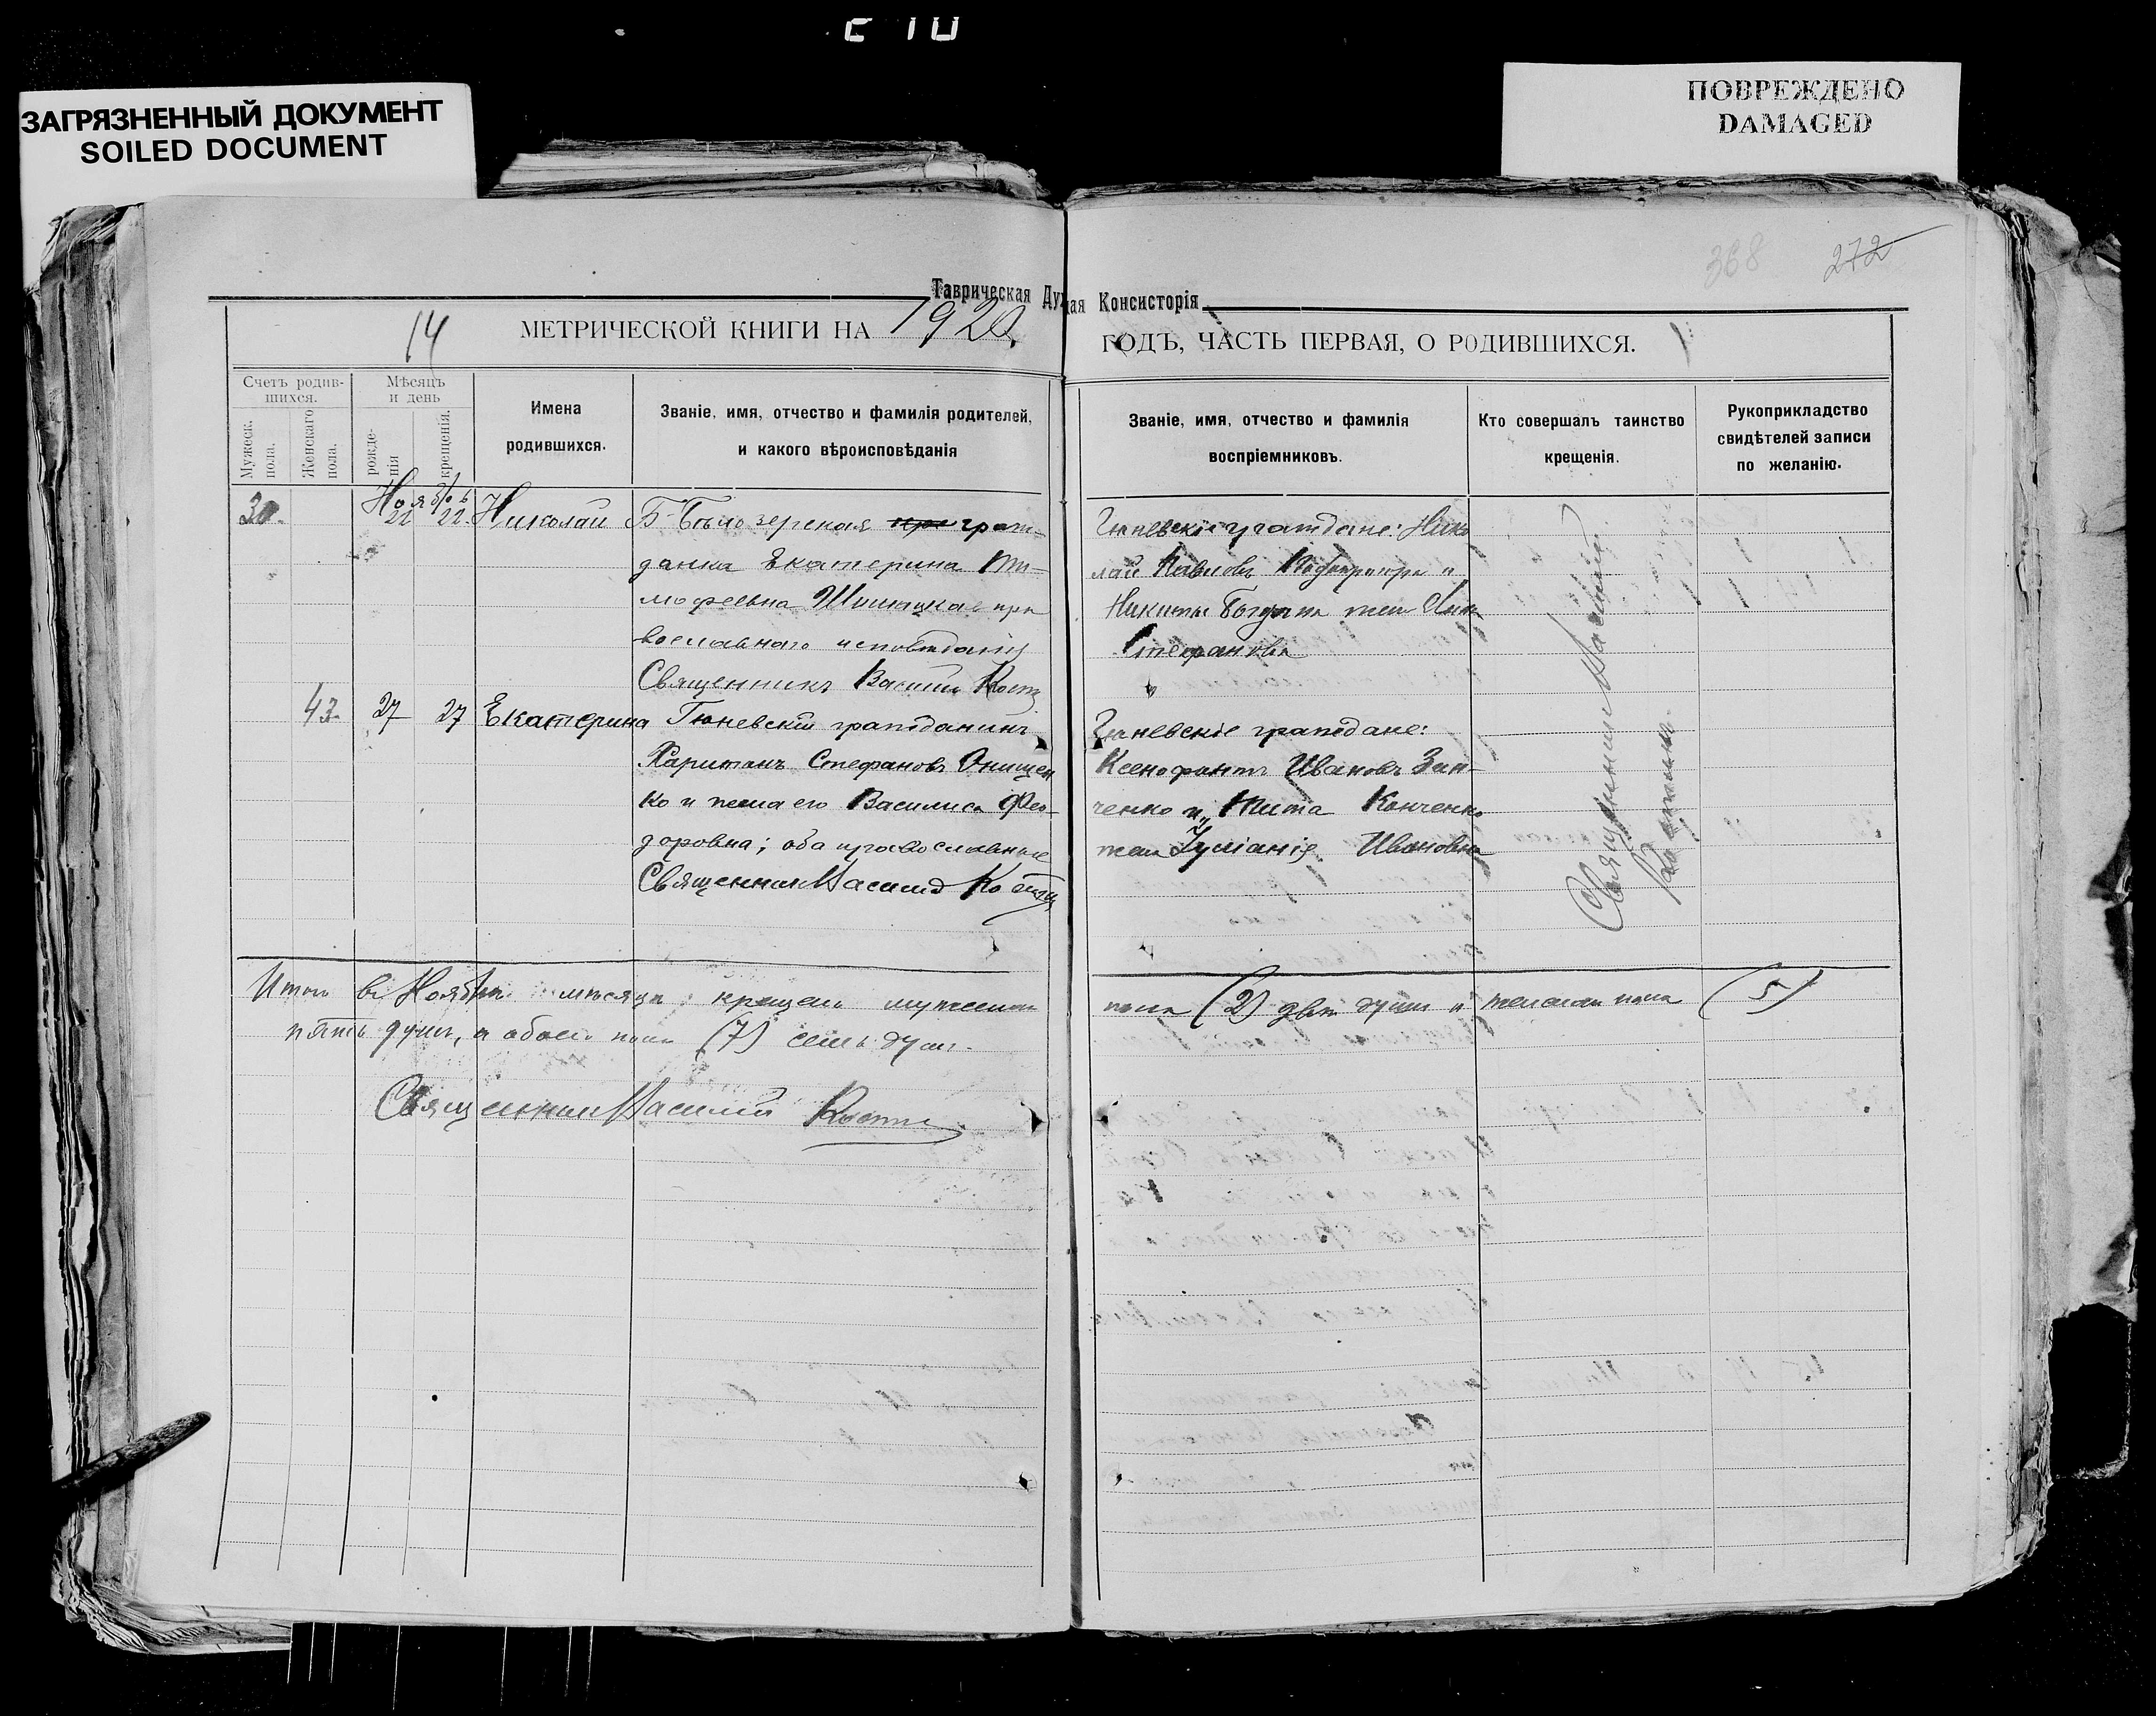 ЗАГРЯЗНЕННЫЙ ДОКУМЕНТ
SOILED DOCUMENT
ПОВРЕЖДЕНО
DAMAGED
368 272
Таврическая Дух ная Консисторія
14 МЕТРИЧЕСКОЙ КНИГИ НА 1920 ГОДЪ, ЧАСТЬ ПЕРВАЯ, О РОДИВШИХСЯ.
Счетъ родив-
шихся.
Мужеск.
пола.
Женскаго
пола.
Мѣсяцъ
и день
рожде-
нія
крещенія.
Имена
родившихся.
Званіе, имя, отчество и фамилія родителей,
и какого вѣроисповѣданія
Званіе, имя, отчество и фамилія
воспріемниковъ.
Кто совершалъ таинство
крещенія.
Рукоприкладство
свидѣтелей записи
по желанію.
Ноябрь
30. 22 22. Николай Б-Бѣлозерская граж-
данка Екатерина Ти-
мофеевна пра
вославнаго исповѣданія
Священникъ Василій
Гюневскіе граждане: Нико
лай Павловъ и
Никиты жена
Стефановна
43. 27 27 Екатерина Гюневскій гражданинъ
Харитонъ Стефановъ Онищен
ко и жена его Василиса Фео-
доровна; оба православные
Священникъ Василій
Гюневскіе граждане:
Ксенофонтъ Ивановъ Зин-
ченко и Тита
жена Іуліанія Ивановна
Священникъ Василій
Итого въ Ноябрѣ мѣсяцѣ крещено мужескаго
пола (2) двѣ души и женскаго пола (5)
пять душъ, а обоего пола (7) семь душъ.
Священникъ Василій